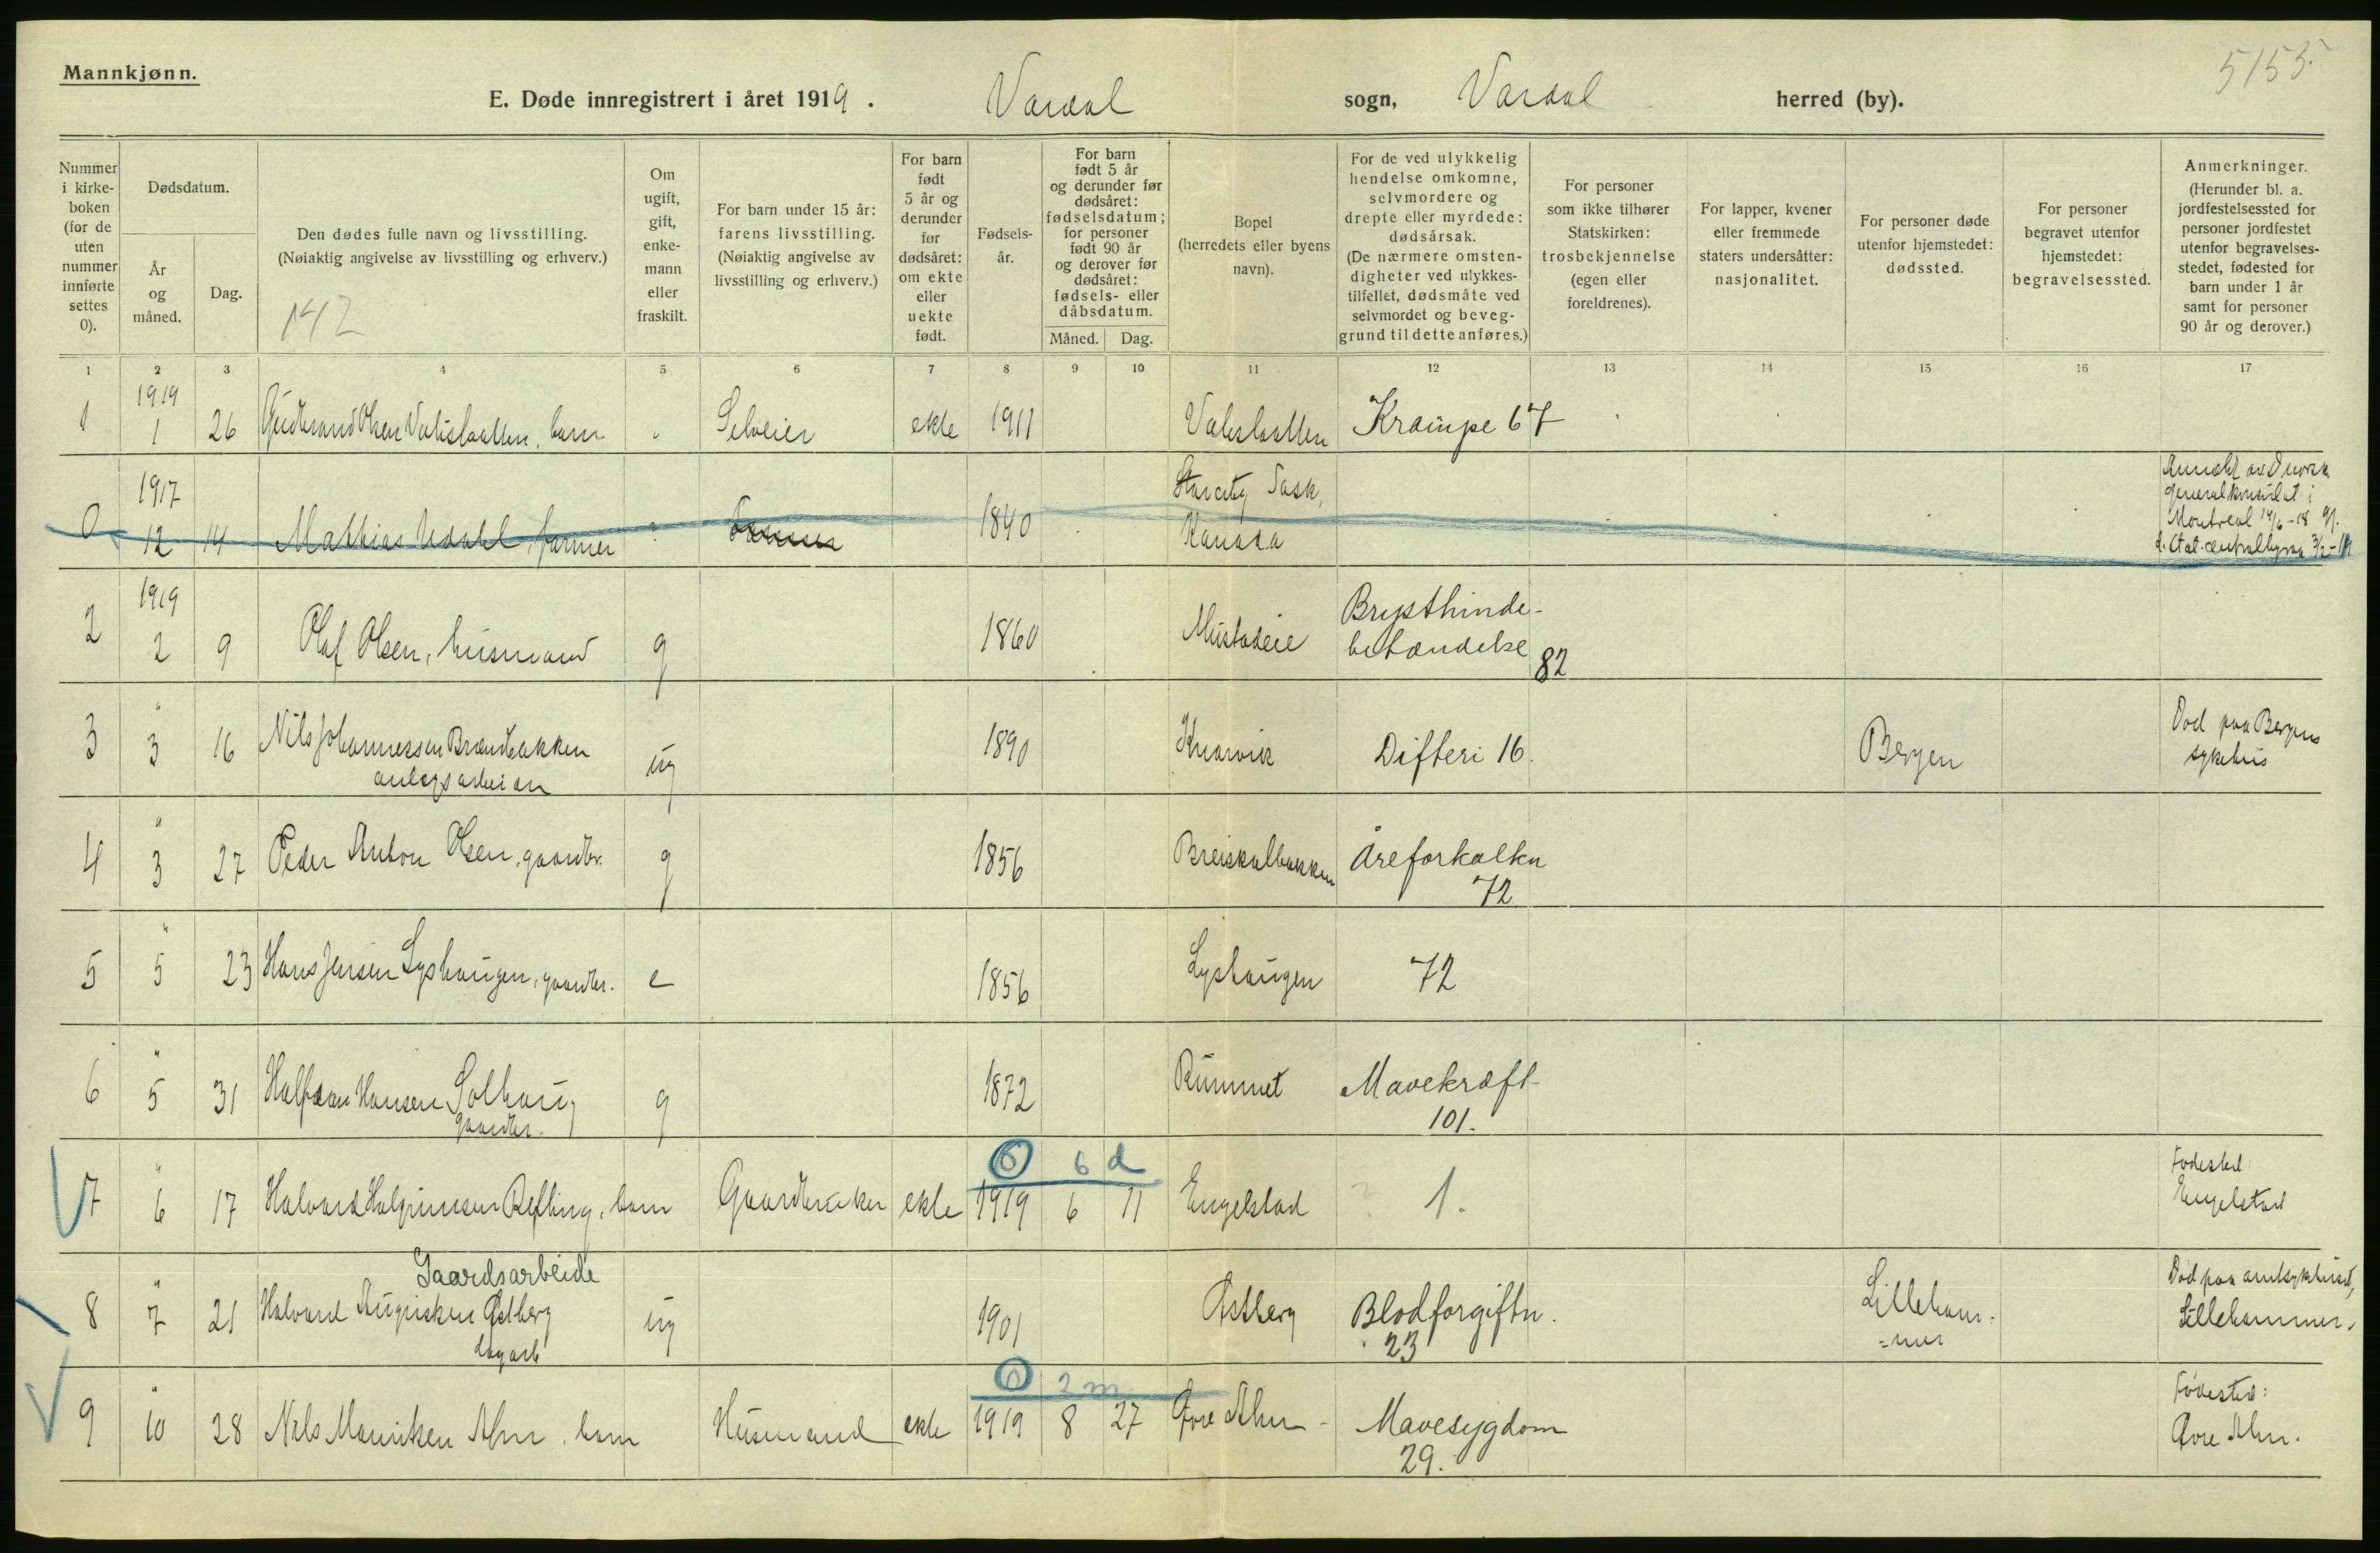 Mannkjønn.
5155
E. Døde innregistrert i året 1919. Vardal sogn, Vardal herred (by).
Nummer i kirke-boken (for de uten nummer innførte settes 0).
Dødsdatum.
År og måned.
Dag.
Den dødes fulle navn og livsstilling.
(Nøiaktig angivelse av livsstilling og erhverv.)
142
Om ugift, gift, enke-mann eller fraskilt.
For barn under 15 år: farens livsstilling. (Nøiaktig angivelse av livsstilling og erhverv.)
For barn født 5 år og derunder før dødsåret: om ekte eller uekte født.
Fødsels-år.
For barn født 5 år og derunder før dødsåret: fødselsdatum; for personer født 90 år og derover før dødsåret: fødsels- eller dåbsdatum.
Måned. Dag.
Bopel (herredets eller byens navn).
For de ved ulykkelig hendelse omkomne, selvmordere og drepte eller myrdede: dødsårsak. (De nærmere omsten-digheter ved ulykkes-tilfellet, dødsmåte ved selvmordet og beveg-grund til dette anføres.)
For personer som ikke tilhører Statskirken: trosbekjennelse (egen eller foreldrenes).
For lapper, kvener eller fremmede staters undersåtter: nasjonalitet.
For personer døde utenfor hjemstedet: dødssted.
For personer begravet utenfor hjemstedet: begravelsessted.
Anmerkninger. (Herunder bl. a. jordfestelsessted for personer jordfestet utenfor begravelses-stedet, fødested for barn under 1 år samt for personer 90 år og derover.)
1 2 3 4 5 6 7 8 9 10 11 12 13 14 15 16 17
1 1919 1 26 Gudbrand Olsen barn Selveier ekte 1911 Krampe 67
0 1917 12 14 Mathias Udahl, farmer Farmer 1840 Star city Sask, Kanada Anmeldt av norsk generalkonsulat i Montreal 14/6-18
2 1919 2 9 Olaf Olsen, husmand g 1860 Mustadeie Brysthinde-betændelse 82
3 " 3 16 Nils Johannessen Brændbakken anlegsarbeider ug 1890 Knarvik Difteri 16. Bergen Død paa Bergens sykehus
4 " 3 27 Peder Anton Olsen, gaardbr. g 1856 Breiskalbakken Åreforkalkn 72
5 " 5 23 Hans Jensen Lyshaugen, gaardbr. e 1856 Lyshaugen 72
6 " 5 31 Halfdan Hansen Solhaug gaardbr. g 1872 Rummet Mavekræft 101.
0 6 d
7 " 6 17 Halvard Halgrimsen Refling, barn Gaardbruker ekte 1919 6 11 Engelstad 1. Fødested Engelstad
Gaardsarbeide
8 " 7 21 Halvard Augustsen Østberg dagarb ug 1901 Østberg Blodforgiftn. 23 Lilleham=mer Død paa amtsykehuset, Lillehammer.
0 2 m
9 " 10 28 Nils Mauritsen Alm, barn Husmand ekte 1919 8 27 Øvre Alm Mavesygdom 29. Fødested: Øvre Alm.